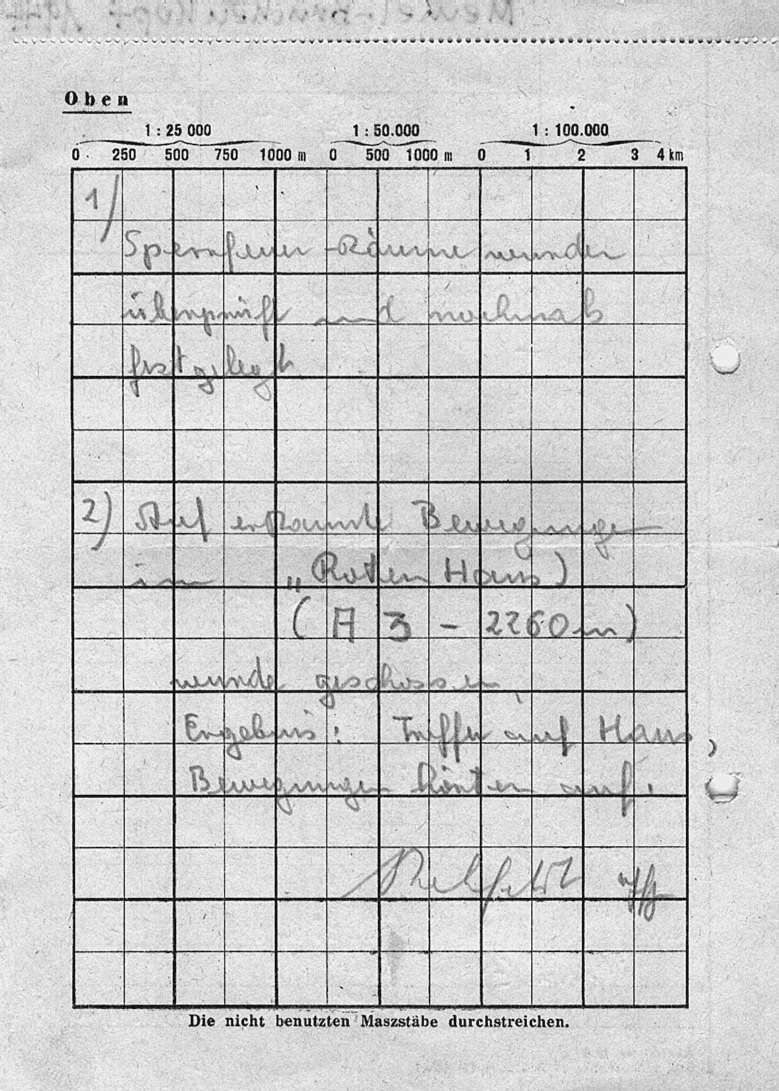 Oben
1 : 25 000 1 : 50.000 1 : 100.000
0 250 500 750 1000 m 0 500 1000 m 0 1 2 3 4 km
1)
Sperrfeuer-Räume wurden
überprüft und nochmals
festgelegt
2) Auf erkannte Bewegungen
im "Roten Haus)
(A 3 - 2260 m)
wurde geschossen,
Ergebnis: Treffer auf Haus,
Bewegungen hörten auf.
Uffz
Die nicht benutzten Maszstäbe durchstreichen.